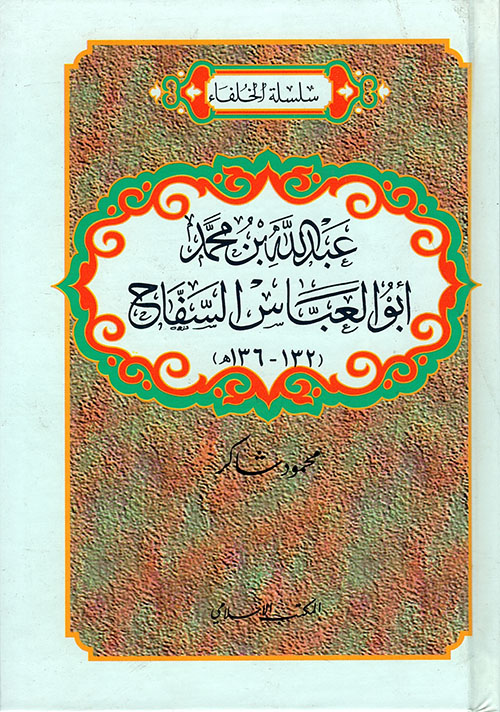 سلسلة الخلفاء
عَبْدُ اللَّهِ بْنُ مُحَمَّد
أبُو العَبَّاسِ السَّفَّاح
(١٣٢ - ١٣٦ هـ)
محمود شاكر
المكتب الإسلامي